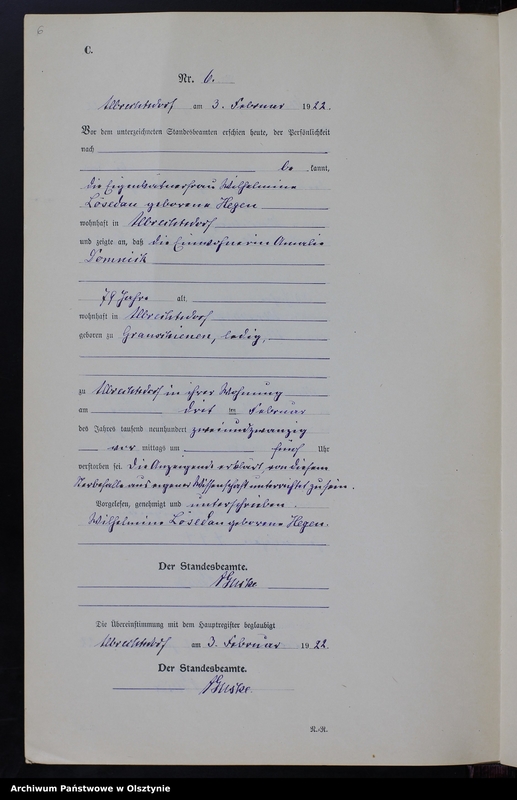 6
C.
Nr. 6.
Albrechtsdorf am 3. Februar 1922.
Vor dem unterzeichneten Standesbeamten erschien heute, der Persönlichkeit
nach
be kannt,
die Eigenkätnerfrau Wilhelmine
Lösedau geborene Hegen
wohnhaft in Albrechtsdorf
und zeigte an, daß die Einwohnerin Amalie
Domnick
79 Jahre alt,
wohnhaft in Albrechtsdorf
geboren zu ledig,
zu Albrechtsdorf in ihrer Wohnung
am drit ten Februar
des Jahres tausend neunhundert zweiundzwanzig
vor mittags um fünf Uhr
verstorben sei. Die Anzeigende erklärt, von diesem
Sterbefalle aus eigener Wissenschaft unterrichtet zu sein.
Vorgelesen, genehmigt und unterschrieben.
Wilhelmine Lösedau geborene Hegen.
Der Standesbeamte.
Die Übereinstimmung mit dem Hauptregister beglaubigt
Albrechtsdorf am 3. Februar 1922
Der Standesbeamte.
N.-R.
Archiwum Państwowe w Olsztynie